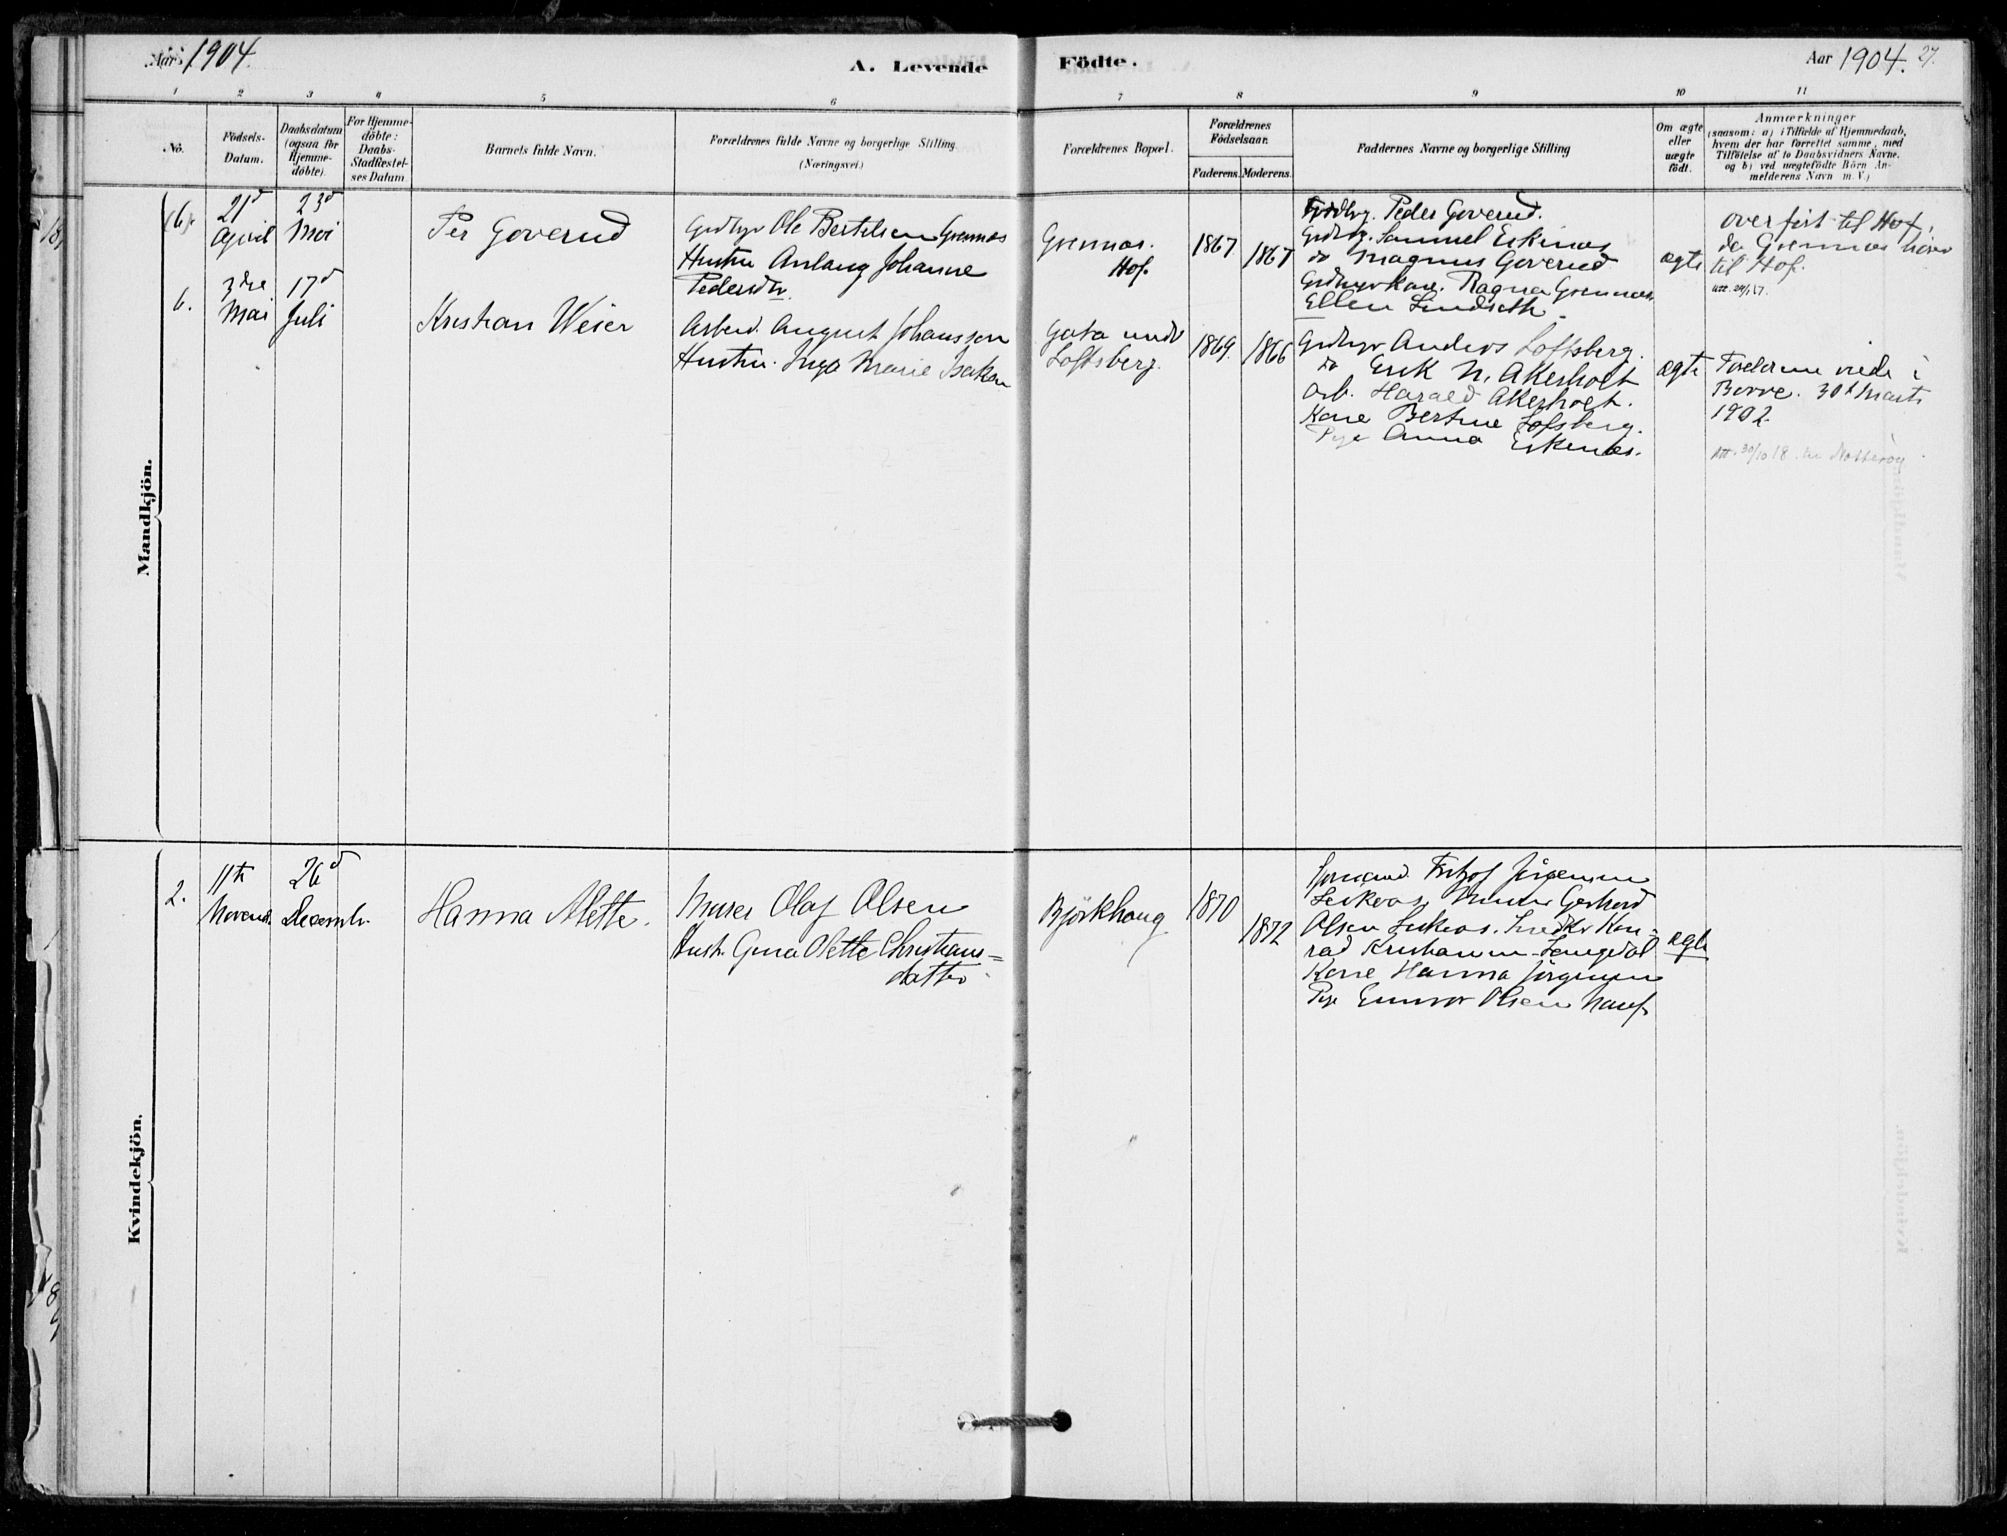 Aar 1904.
A. Levende
Födte.
Aar 1904. 27.
1 2 3 4 5 6 7 8 9 10 11
No.
Födsels-
Datum.
Daabsdatum
(ogsaa for
Hjemme-
döbte).
For Hjemme-
döbte:
Daabs-
Stadfæstel-
ses Datum
Barnets fulde Navn.
Forældrenes fulde Navne og borgerlige Stilling
(Næringsvei.)
Forældrenes Bopæl.
Forældrenes
Födselsaar.
Faderens. Moderens.
Faddernes Navne og borgerlige Stilling
Om ægte
eller
uægte
födt.
Anmærkninger
(saasom: a) i Tilfælde af Hjemmedaab,
hvem der har forrettet samme, med
Tilföielse af to Daabsvidners Navne,
og b) ved uægtefödte Börn An-
melderens Navn m. V.)
Mandkjön.
(6).
21d
April
23d
Mai
Per Goverud
Grdbgr Ole Bertelsen Grennes
Hustru Anlaug Johanne
Pedersdtr
Grennes.
Hof.
1867 1867
Grdbrg. Peder Goverud.
Grdbrg. Samuel Eskinas
do Magnus Goverud
Grdbrgrkone. Ragna Grennes
Ellen Lindseth.
ægte
overført til Hof,
da Grennes hører
til Hof.
6.
3die
Mai
17d
Juli
Kristian Weier
Arbeid. August Johanssen
Hustru. Inga Marie Isaksen
Gata under
Loftsberg.
1869. 1866
Grdbrgr Anders Loftsberg.
do Erik N. Akerholt
Arb. Harald Akerholt.
Kone Bertine Lofsberg.
Pige Anna Eskenas.
ægte
Forældrene viede i
Borre. 30te Marts
1902.
Att. 30/10 18.
Kvindekjön.
2.
11te
Novemb.
26d
Decembr.
Hanna Alette.
Murer Olaf Olsen
Hust. Gina Olette Christians=
datter
Björkhaug
1870
1872
Formand Fritjof Jörgensen
Gerhard
Olsen
Kon-
rad Kristiansen Langedal
Kone Hanna Jörgensen
Pige Gunvor Olsen
ægte